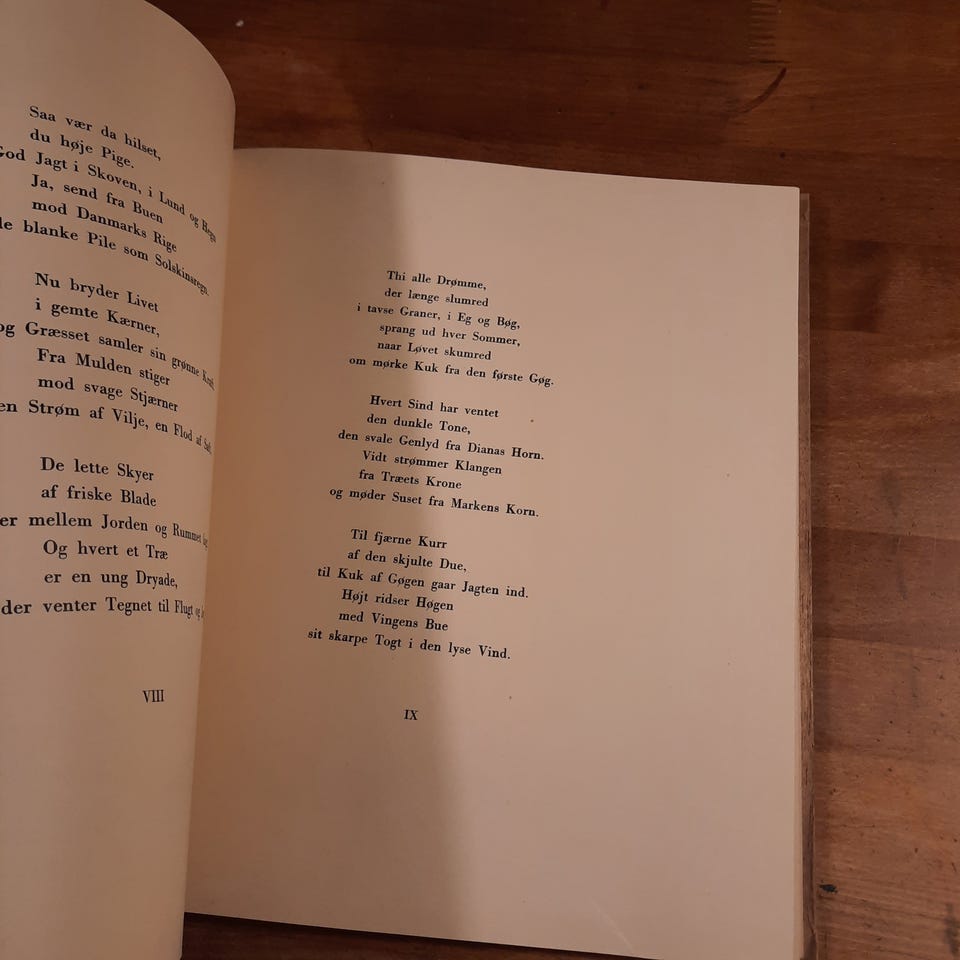 Saa vær da hilset,
du høje Pige.
God Jagt i Skoven, i Lund og Hegn
Ja, send fra Buen
mod Danmarks Rige
blanke Pile som Solskinsregn.
Nu bryder Livet
i gemte Kærner,
og Græsset samler sin grønne Kraft.
Fra Mulden stiger
mod svage Stjærner
en Strøm af Vilje, en Flod af Saft.
De lette Skyer
af friske Blade
mellem Jorden og Rummet
Og hvert et Træ
er en ung Dryade,
der venter Tegnet til Flugt og
VIII
Thi alle Drømme,
der længe slumred
i tavse Graner, i Eg og Bøg,
sprang ud hver Sommer,
naar Løvet skumred
om mørke Kuk fra den første Gøg.
Hvert Sind har ventet
den dunkle Tone,
den svale Genlyd fra Dianas Horn.
Vidt strømmer Klangen
fra Træets Krone
og møder Suset fra Markens Korn.
Til fjærne Kurr
af den skjulte Due,
til Kuk af Gøgen gaar Jagten ind.
Højt ridser Høgen
med Vingens Bue
sit skarpe Togt i den lyse Vind.
IX